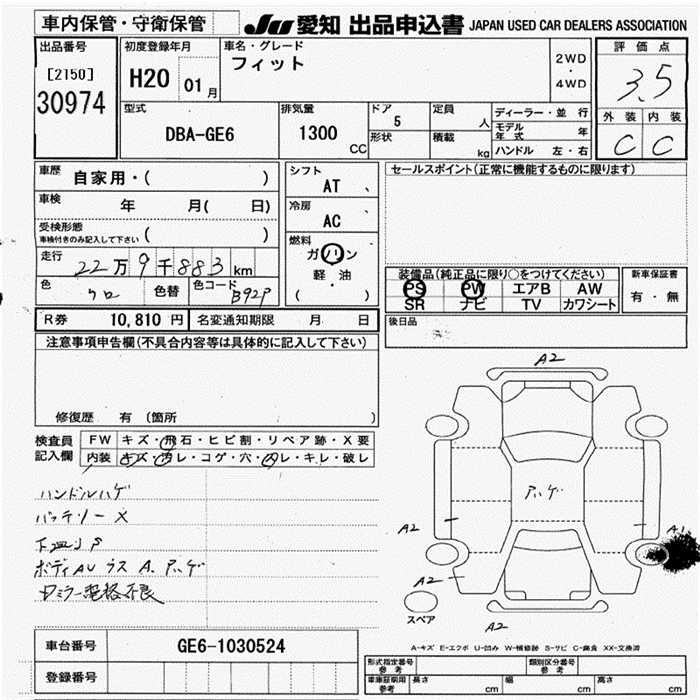 車内保管・守衛保管
JU 愛知 出品申込書 JAPAN USED CAR DEALERS ASSOCIATION
出品番号
[2150]
30974
初度登録年月
H20 01月
車名・グレード
フィット
2WD
・
4WD
評価点
3.5
外装 内装
C C
型式
DBA-GE6
排気量
1300
CC
ドア
5
形状
定員
人
積載
kg
ディーラー・並行
モデル年式 年
ハンドル 左・右
車歴
自家用・( )
車検
年 月( 日)
受検形態
車検付きのみ記入して下さい ( )
走行
22万9千883km
色
クロ
色替
色コード
B92P
シフト
AT 、
冷房
AC
燃料
ガソリン
・
軽・油
( )
セールスポイント(正常に機能するものに限ります)
装備品(純正品に限り○をつけてください)
PS PW エアB AW
SR ナビ TV カワシート
新車保証書
有・無
後日品
R券 10,810円 名変通知期限 月 日
注意事項申告欄(不具合内容等は具体的に記入して下さい)
修復歴 有 (箇所 )
検査員
記入欄
FW キズ・飛石・ヒビ割・リペア跡・X要
内装 キズ・汚レ・コゲ・穴・スレ・キレ・破レ
ハンドルハゲ
バッテリーX
下廻りS
ボディAUラスA.アハゲ
ミラー格不良
A2
アハゲ
A2
A1
A2
A2
スペア
A-キズ E-エクボ U-凹み W-補修跡 S-サビ C-腐食 XX-交換済
車台番号 GE6-1030524
登録番号
形式指定番号
参考
類別区分番号
参考
車庫証明用
参考
長さ cm 幅 cm 高さ cm